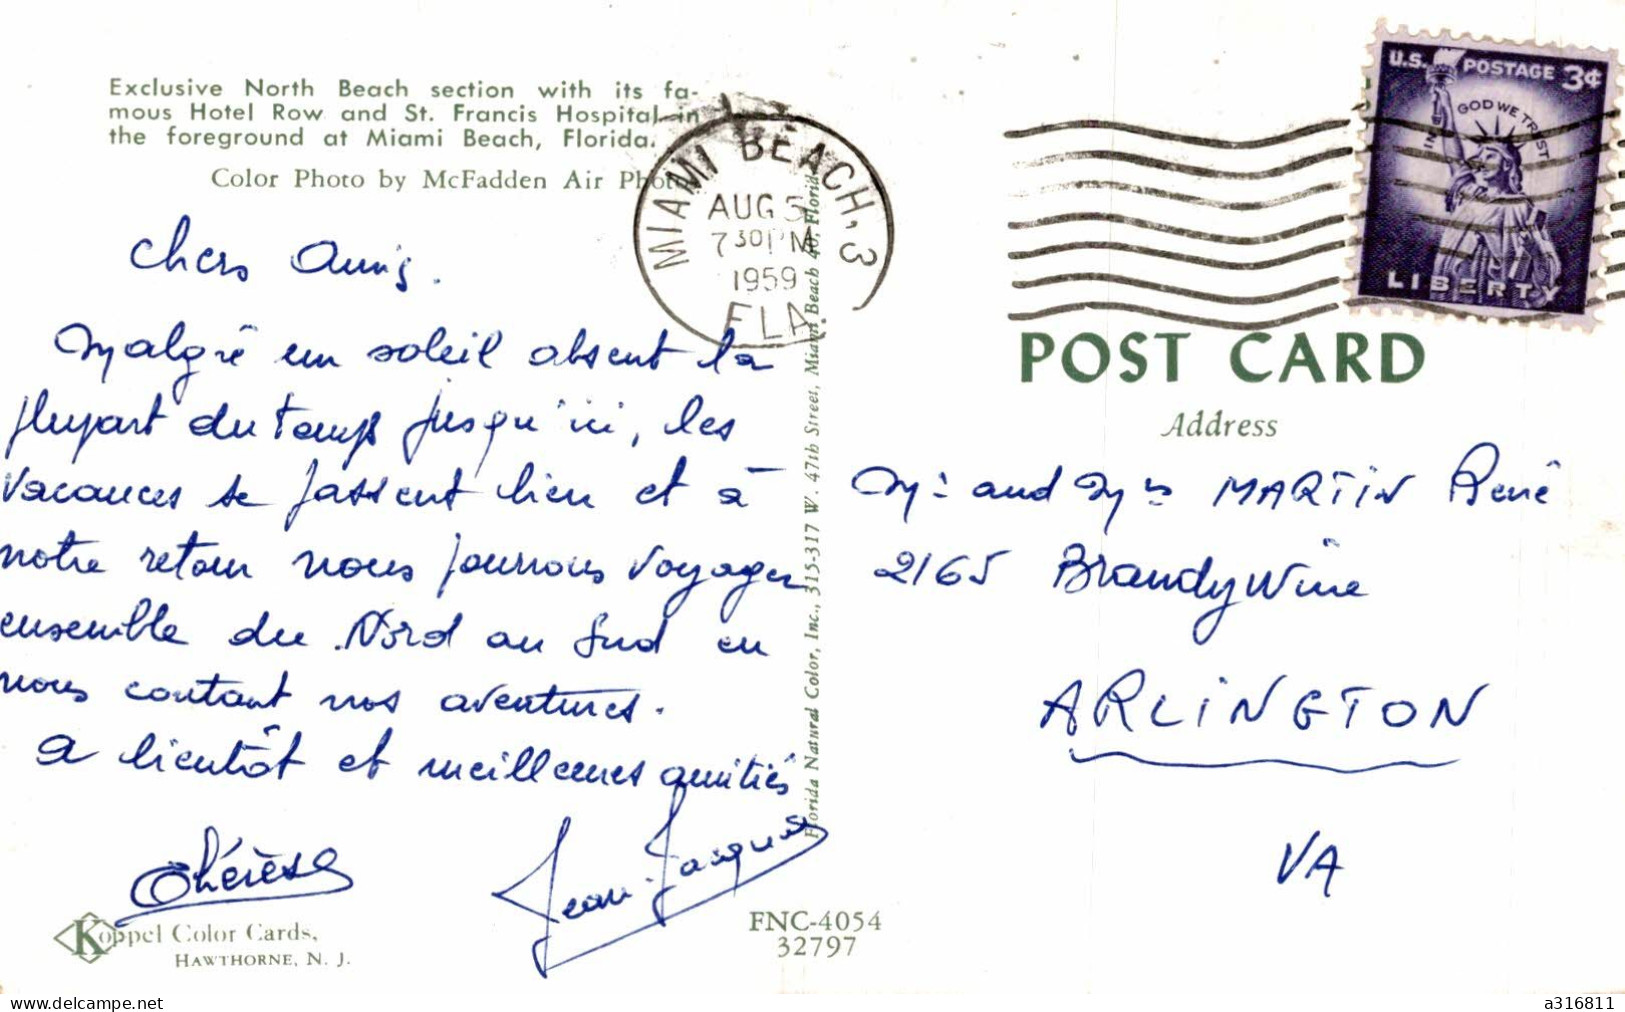 Exclusive North Beach section with its fa-
mous Hotel Row and St. Francis Hospital in
the foreground at Miami Beach, Florida.
Color Photo by McFadden Air Photos
MIAMI BEACH, 3
AUG 5
7 30 PM
1959
FLA.
U.S. POSTAGE 3¢
IN GOD WE TRUST
LIBERTY
chers Amis.
Malgré un soleil absent la
plupart du temps jusqu'ici, les
vacances se passent bien et à
notre retour nous pourrons voyager
ensemble du Nord au Sud en
nous contant nos aventures.
A bientôt et meilleures amitiés
Thérèse
Jean-Jacques
Koppel Color Cards,
HAWTHORNE, N. J.
FNC-4054
32797
Florida Natural Color, Inc., 315-317 W. 47th Street, Miami Beach 40, Florida
POST CARD
Address
Mr and Mrs MARTIN René
2165 BrandyWine
ARLINGTON
VA
www.delcampe.net
a316811